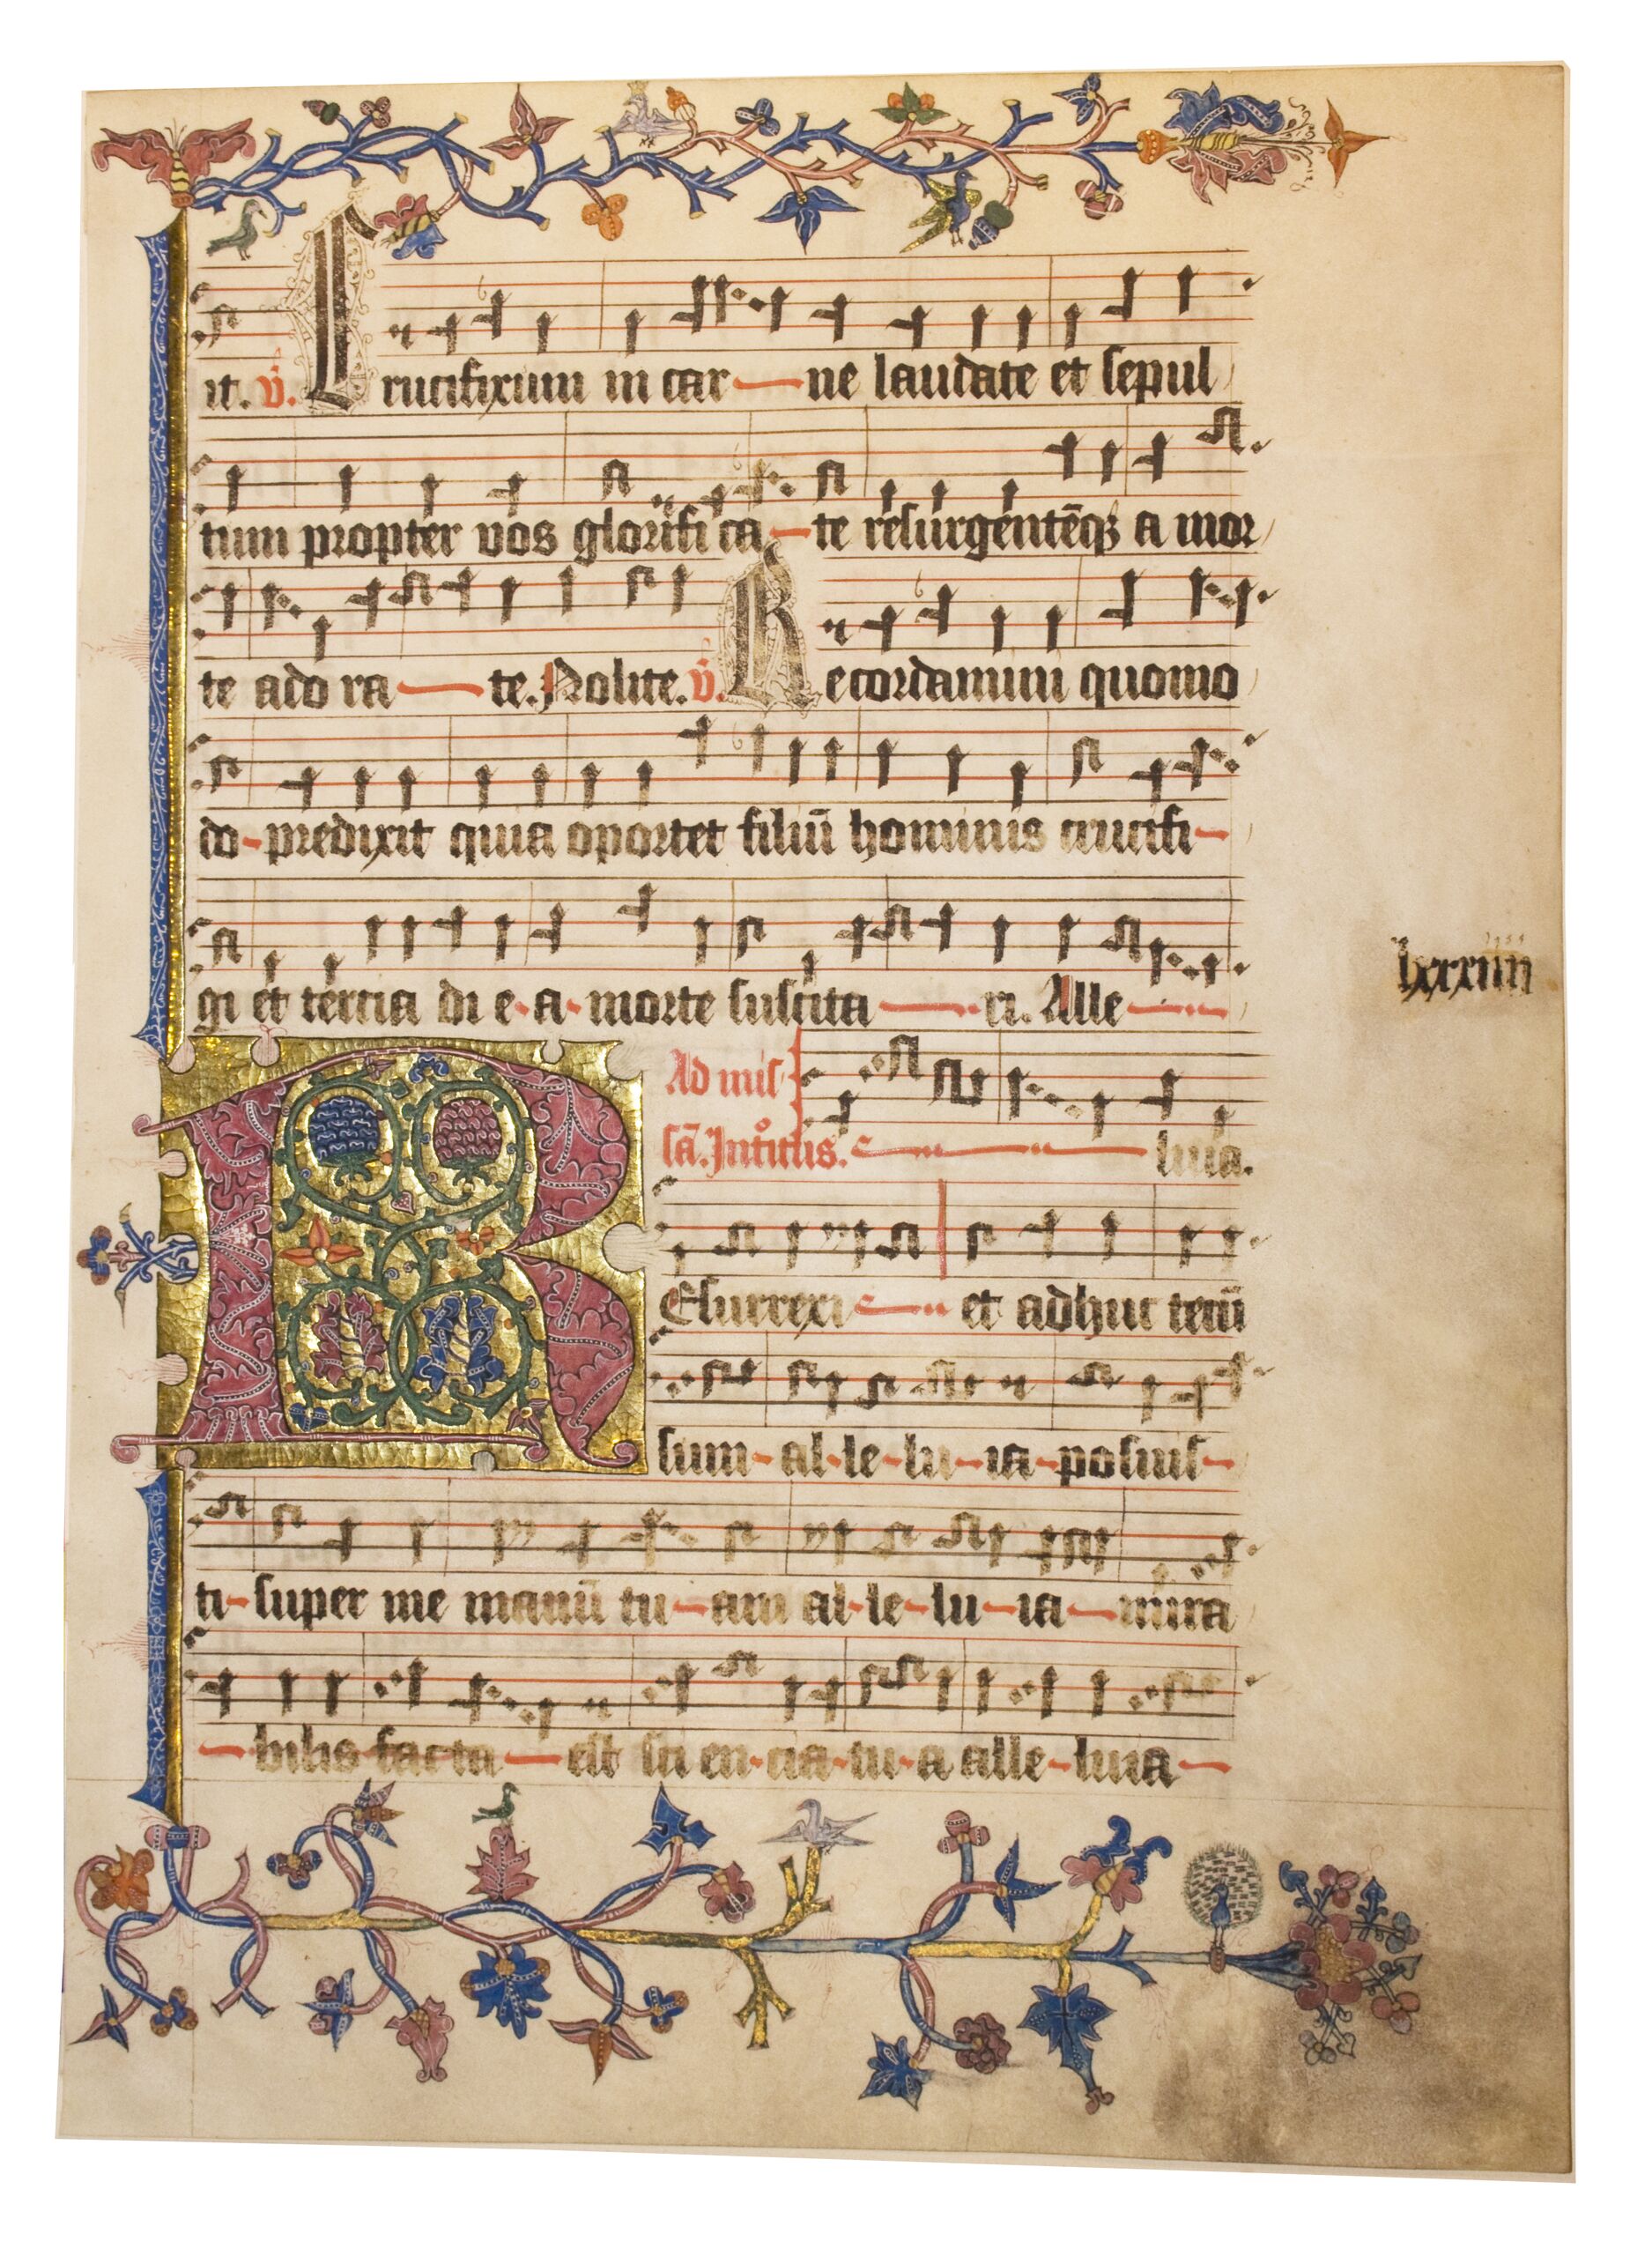 it. v̄. Crucifixum in car ne laudate et sepul
tum propter vos glorifi ca te resurgentēqꝫ a mor
te ado ra te. Nolite. v̄. Recordamini quomo
do predixit quia oportet filiū hominis crucifi
gi et tercia di e a morte suscita ri. Alle
lxxxiiii
Ad mis
sā. Introitus. luia.
REsurrexi et adhuc tecū
sum al le lu ia posuis
ti super me manū tu am al le lu ia mira
bilis facta est sci en cia tu a alle luia